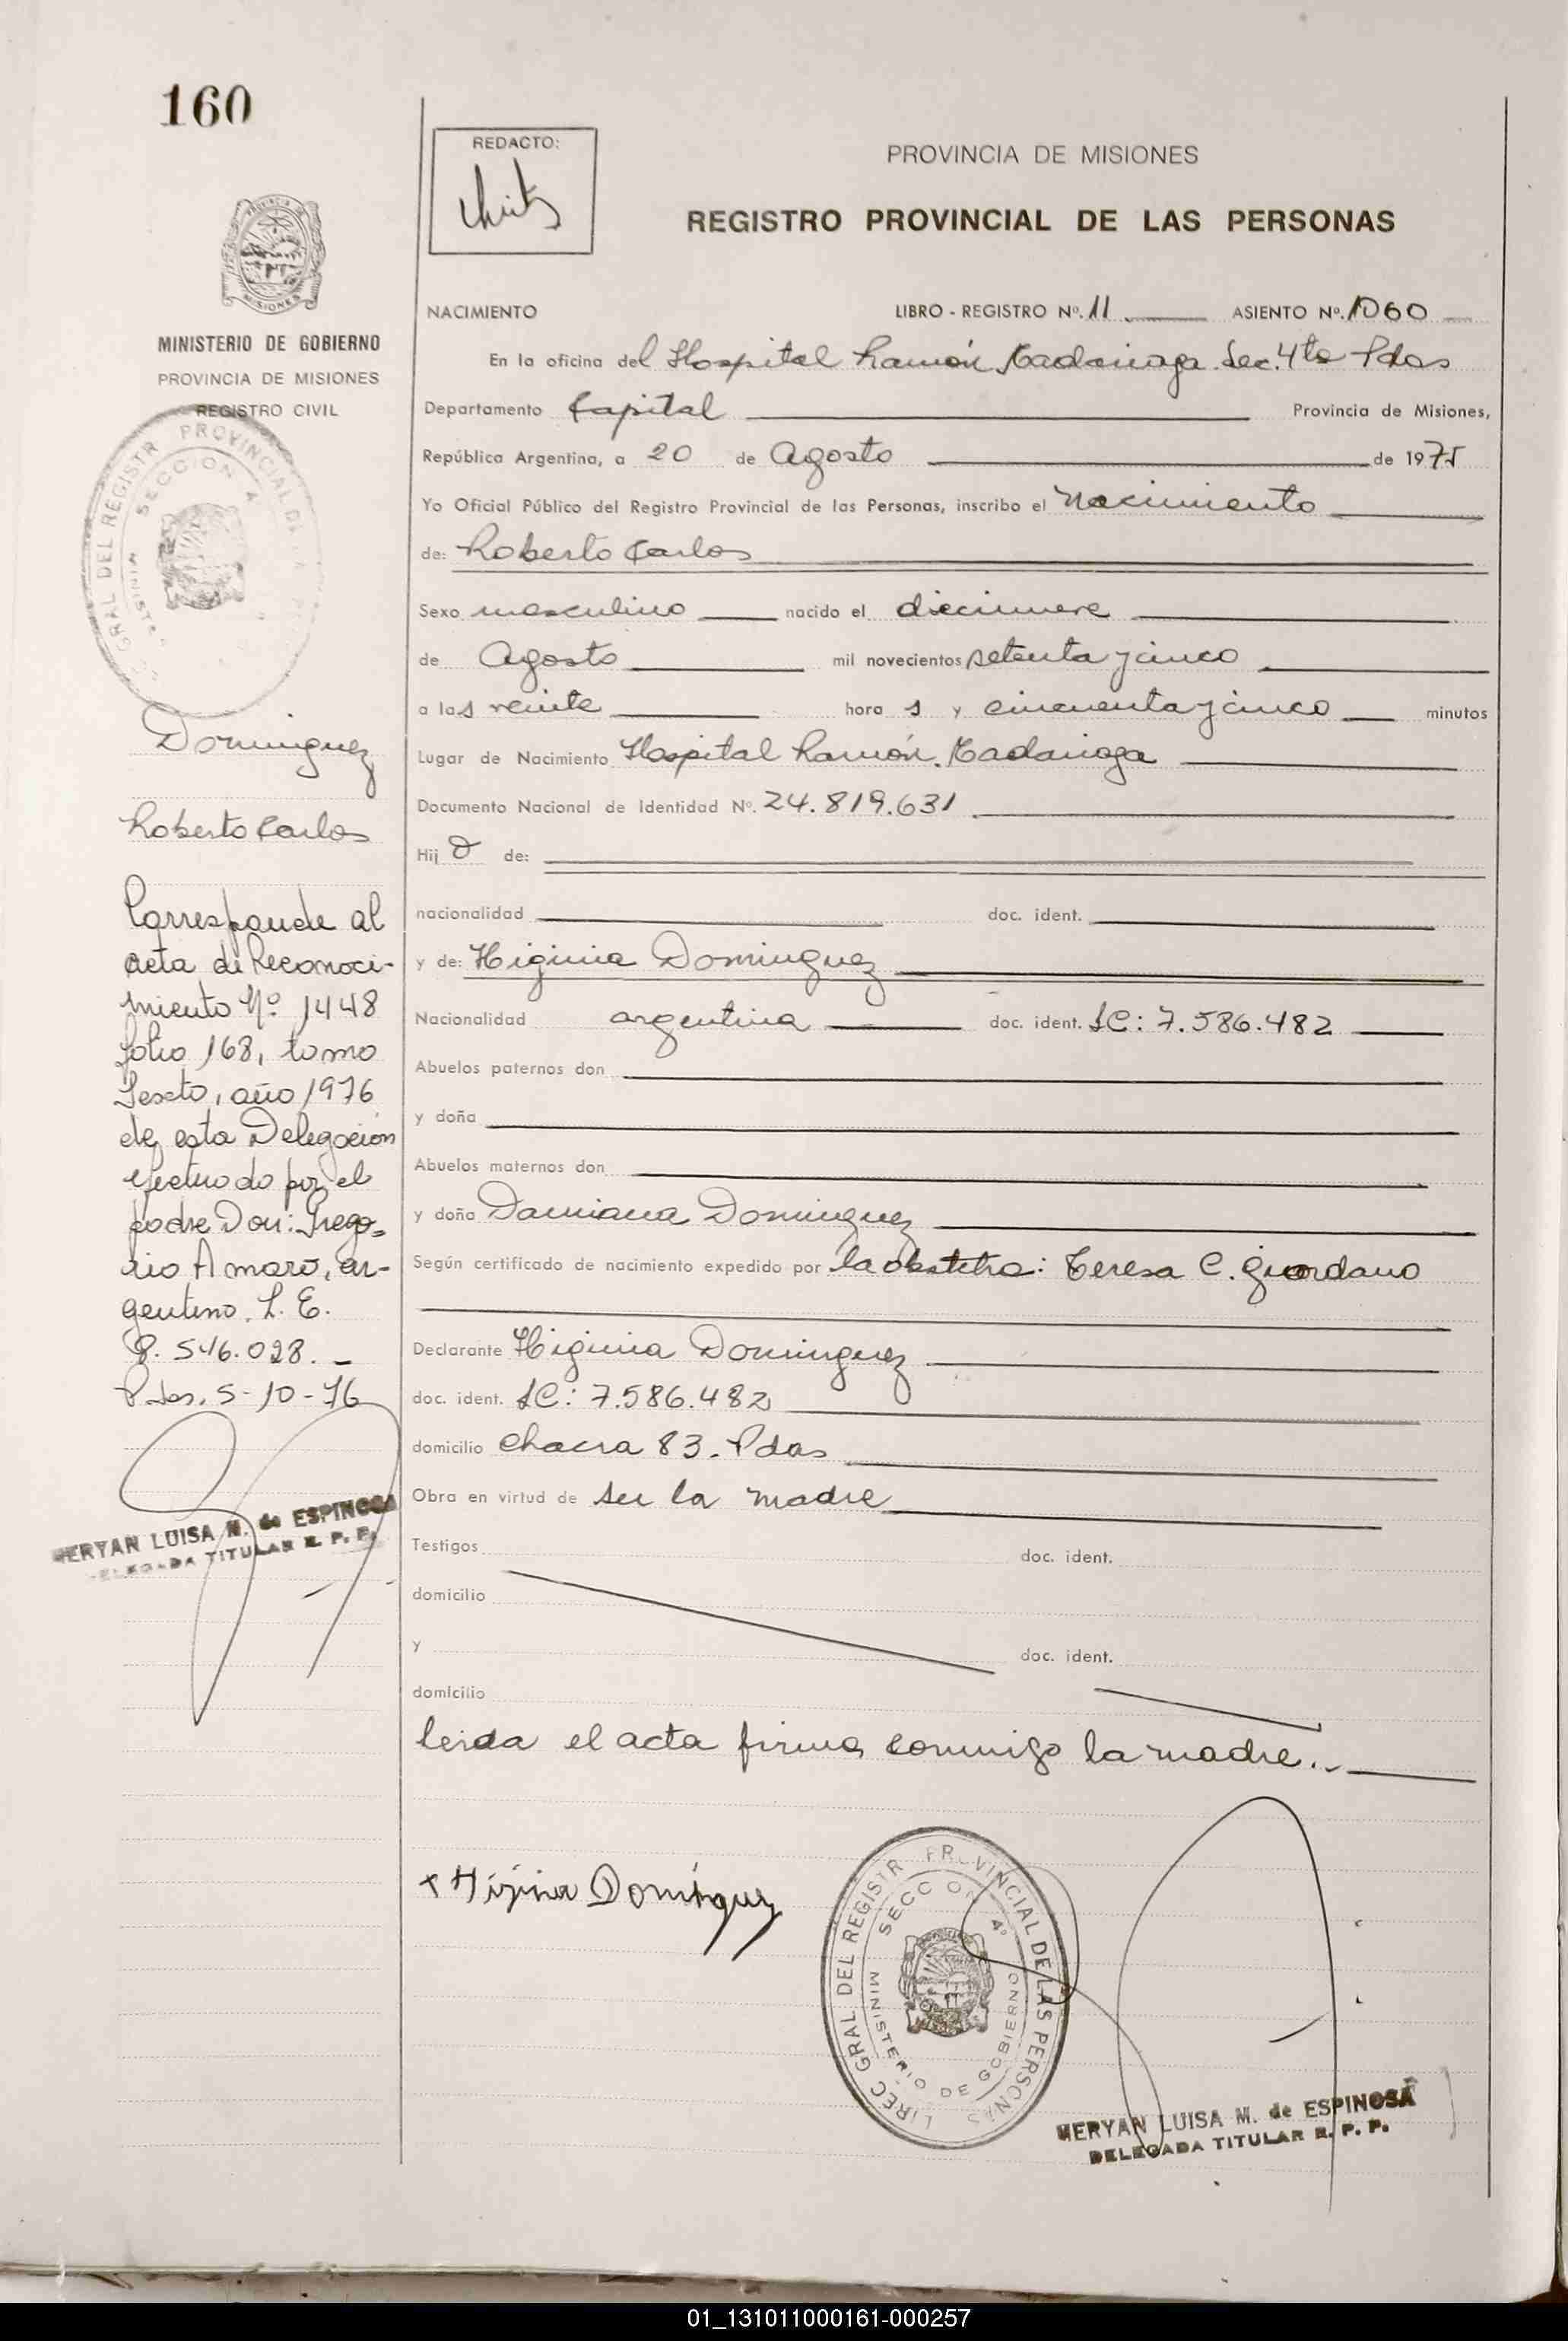 160
REDACTO:
PROVINCIA DE MISIONES
REGISTRO PROVINCIAL DE LAS PERSONAS
MISIONES
MINISTERIO DE GOBIERNO
PROVINCIA DE MISIONES
REGISTRO CIVIL
GRAL DEL REGISTR PROVINCIAL DE LA
SECCION 4
NACIMIENTO LIBRO - REGISTRO Nº. 11 ASIENTO Nº. 1060
En la oficina del Hospital Ramón Madariaga Sec. 4ta Pdas
Departamento Capital Provincia de Misiones,
República Argentina, a 20 de Agosto de 1975
Yo Oficial Público del Registro Provincial de las Personas, inscribo el Nacimiento
de: Roberto Carlos
Sexo masculino nacido el diecinueve
de Agosto mil novecientos setenta y cinco
a las veinte hora s y cincuenta y cinco minutos
Lugar de Nacimiento Hospital Ramón Madariaga
Documento Nacional de Identidad Nº. 24.819.631
Hij o de:
nacionalidad doc. ident.
y de: Higinia Dominguez
Nacionalidad argentina doc. ident. LC: 7.586.482
Abuelos paternos don
y doña
Abuelos maternos don
y doña Damiana Dominguez
Según certificado de nacimiento expedido por la obstetra: Teresa C. Giordano
Declarante Higinia Dominguez
doc. ident. LC: 7.586.482
domicilio chacra 83. Pdas
Obra en virtud de ser la madre
Testigos doc. ident.
domicilio
y doc. ident.
domicilio
leida el acta firma conmigo la madre.-
Dominguez
Roberto Carlos
Corresponde al
acta de Reconoci-
miento Nº 1448
folio 168, tomo
Sexto, año 1976
de esta Delegacion
efectuado por el
padre Don: Grego=
rio Amaro, ar-
gentino. L. E.
8. 546.028.-
Pdas. 5-10-76
MERYAN LUISA M. de ESPINOSA
DELEGADA TITULAR R. P. P.
+ Higina Dominguez
DIREC GRAL DEL REGISTR PROVINCIAL DE LAS PERSONAS
SECCION 4º
MINISTERIO DE GOBIERNO
MERYAN LUISA M. de ESPINOSA
DELEGADA TITULAR R. P. P.
01_131011000161-000257